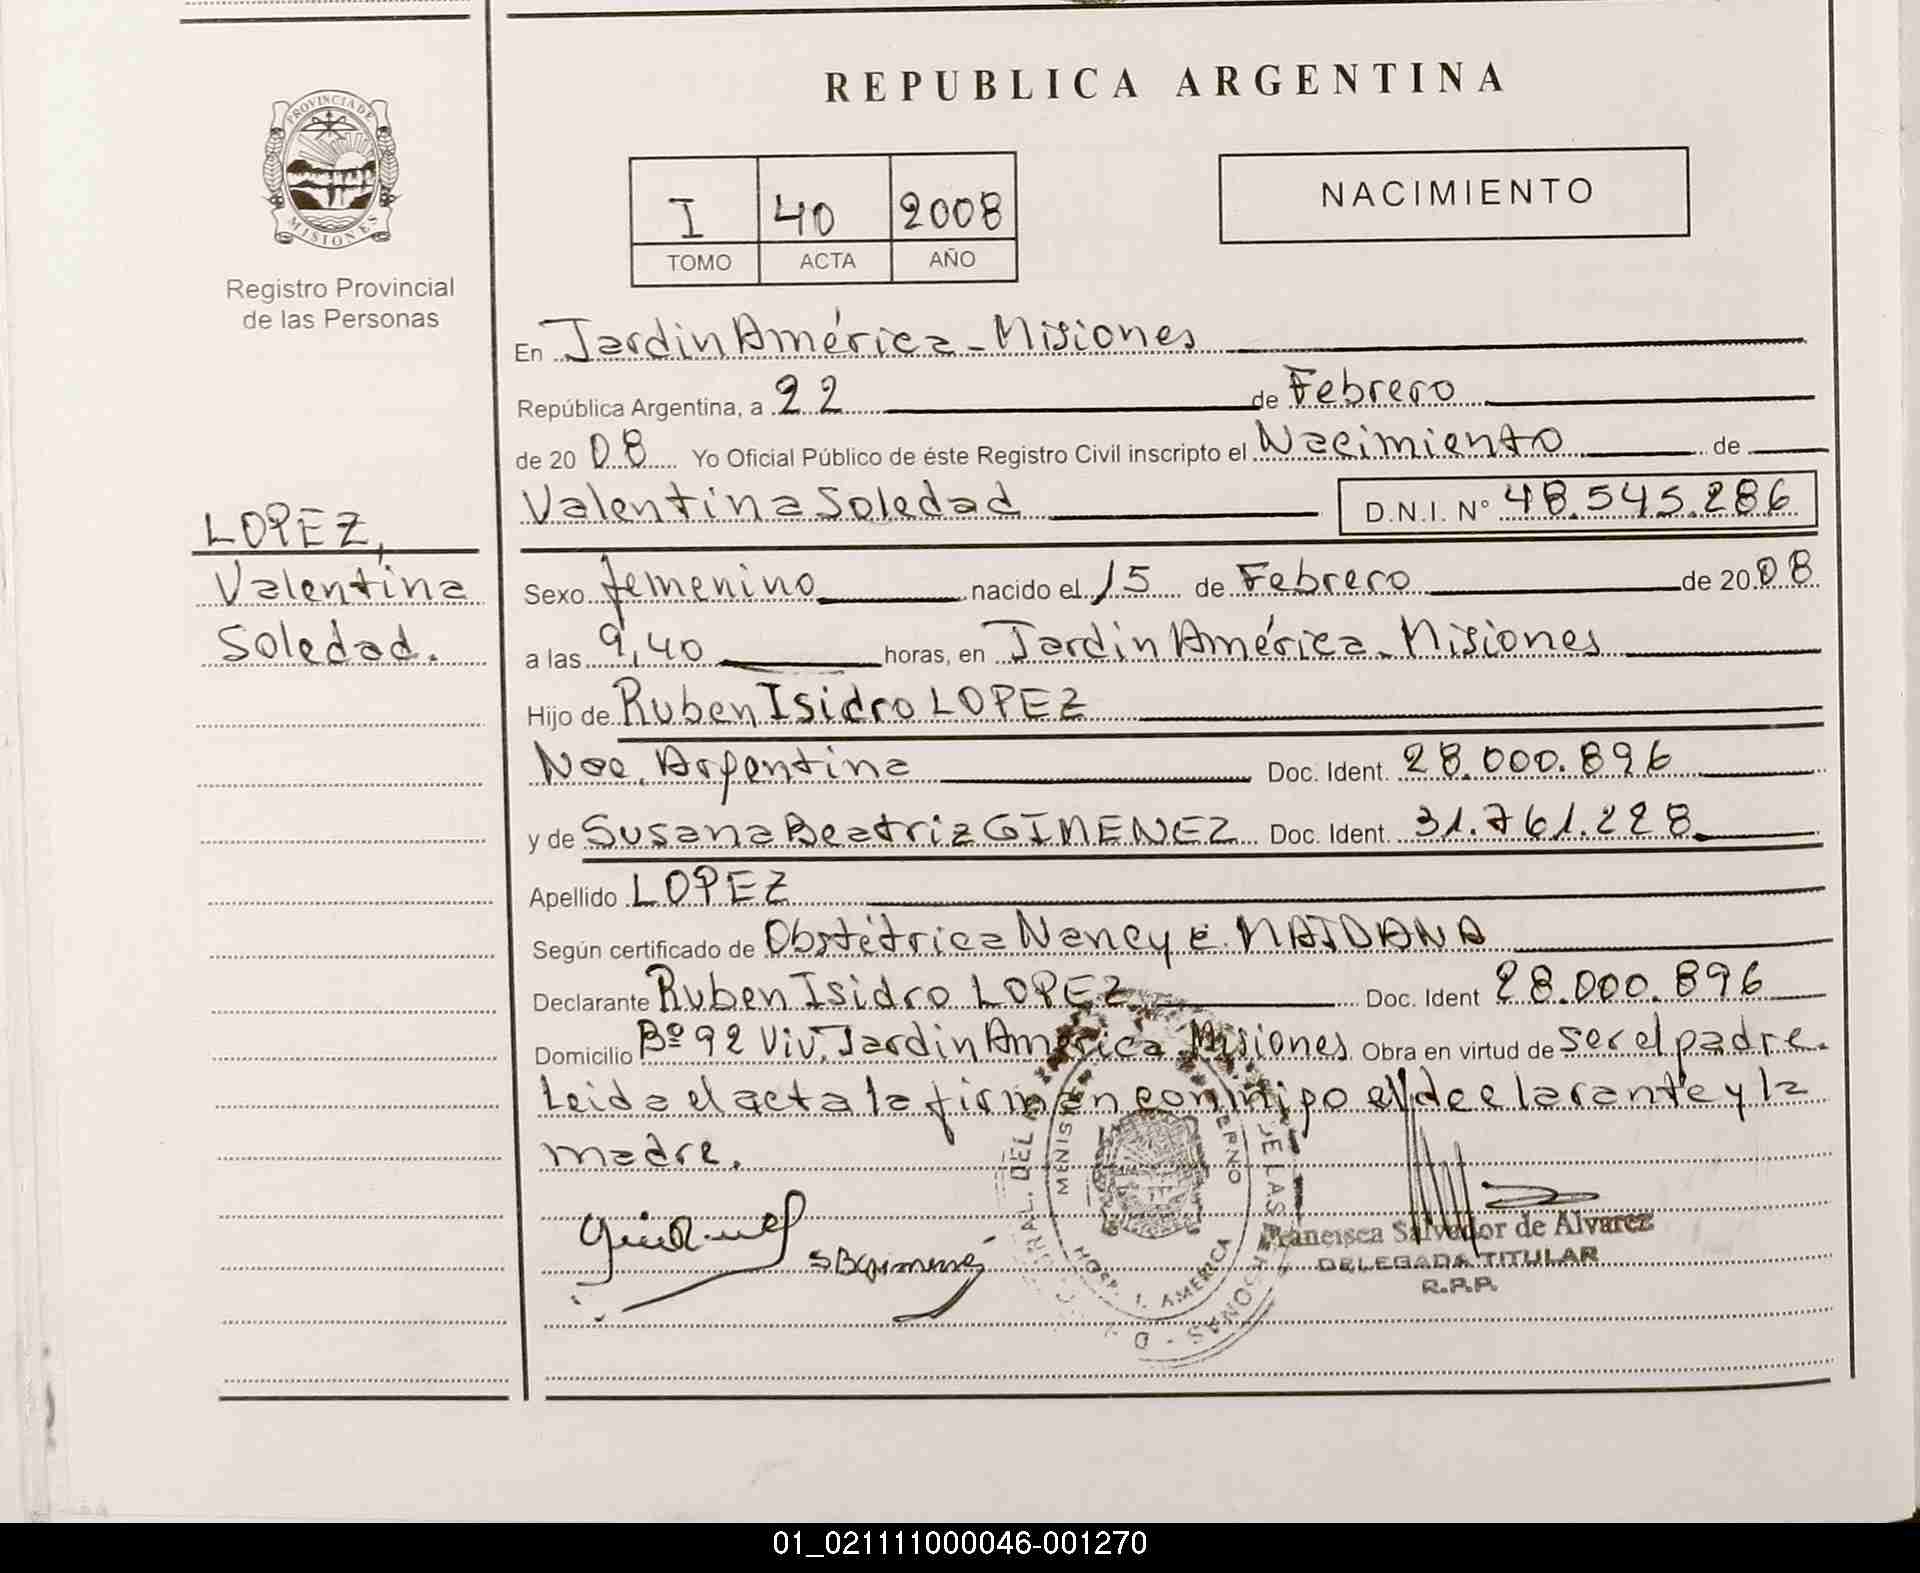 REPUBLICA ARGENTINA
PROVINCIA DE
MISIONES
Registro Provincial
de las Personas
I 40 2008
TOMO ACTA AÑO
NACIMIENTO
En Jardin América - Misiones
República Argentina, a 22 de Febrero
de 20 08 Yo Oficial Público de éste Registro Civil inscripto el Nacimiento de
Valentina Soledad D.N.I. Nº 48.545.286
LOPEZ,
Valentina
Soledad.
Sexo femenino nacido el 15 de Febrero de 20 08
a las 9,40 horas, en Jardin América - Misiones
Hijo de Ruben Isidro LOPEZ
Nac. Argentina Doc. Ident. 28.000.896
y de Susana Beatriz GIMENEZ Doc. Ident. 31.761.228
Apellido LOPEZ
Según certificado de Obstétrica Nancy E. MAIDANA
Declarante Ruben Isidro LOPEZ Doc. Ident 28.000.896
Domicilio Bº 92 Viv. Jardin América Misiones Obra en virtud de ser el padre.
Leida el acta la firman conmigo el declarante y la
madre.
SBGimenez
Francisca Salvador de Alvarez
DELEGADA TITULAR
R.P.P.
HOSP. J. AMERICA
01_021111000046-001270